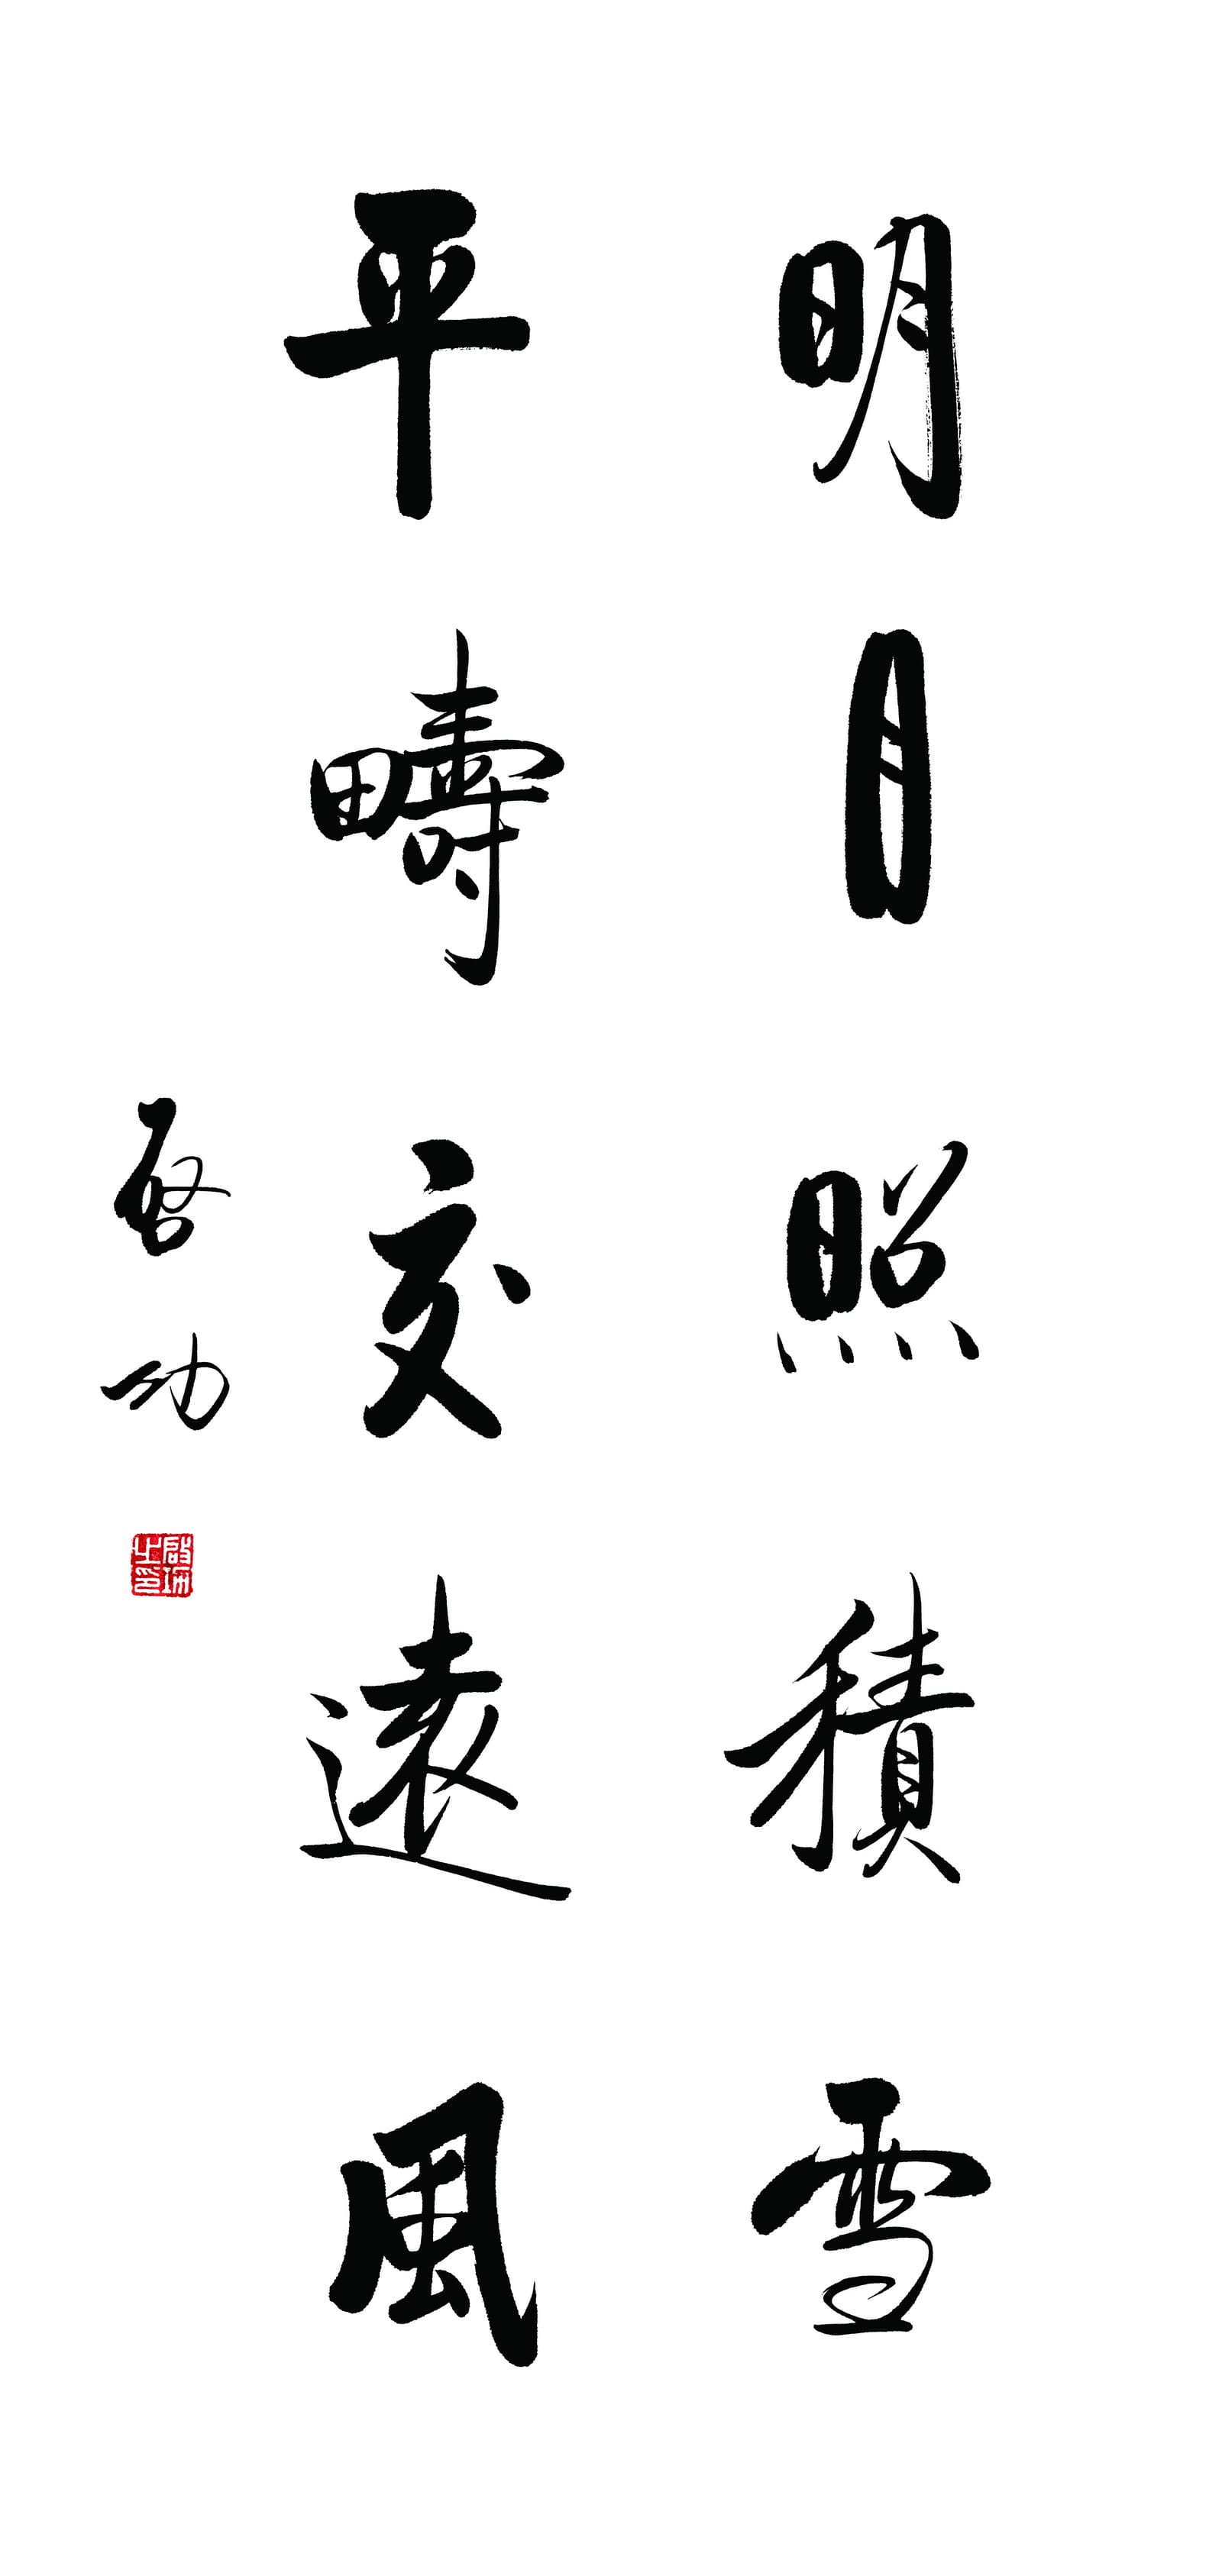 明月照積雪
平疇交遠風
啓功
啟功之印